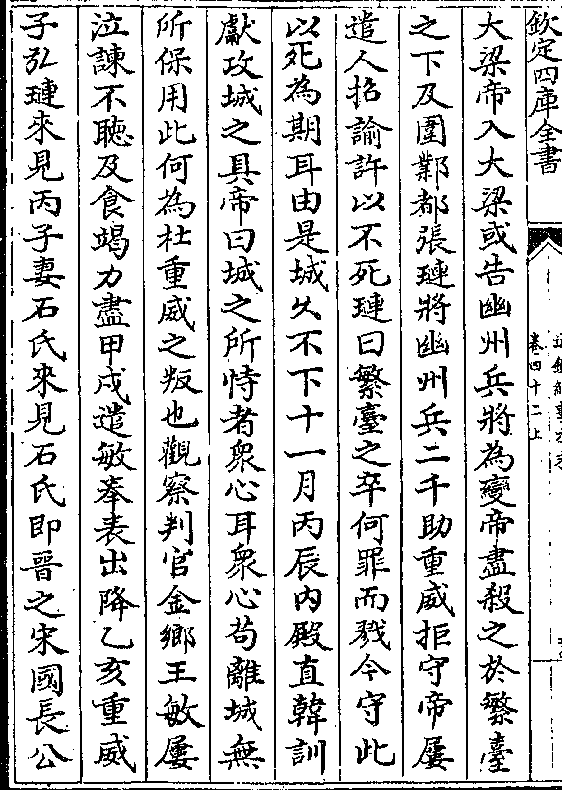 欽定四庫全書
卷四十二上
大梁帝入大梁或告幽州兵將為變帝盡殺之於繁臺
之下及圍鄴都張璉將幽州兵二千助重威拒守帝屢
遣人招諭許以不死璉曰繁臺之卒何罪而戮今守此
以死為期耳由是城久不下十一月丙辰內殿直韓訓
獻攻城之具帝曰城之所恃者衆心耳衆心苟離城無
所保用此何為杜重威之叛也觀察判官金鄉王敏屢
泣諫不聽及食竭力盡甲戌遣敏奉表出降乙亥重威
子弘璉來見丙子妻石氏來見石氏即晉之宋國長公